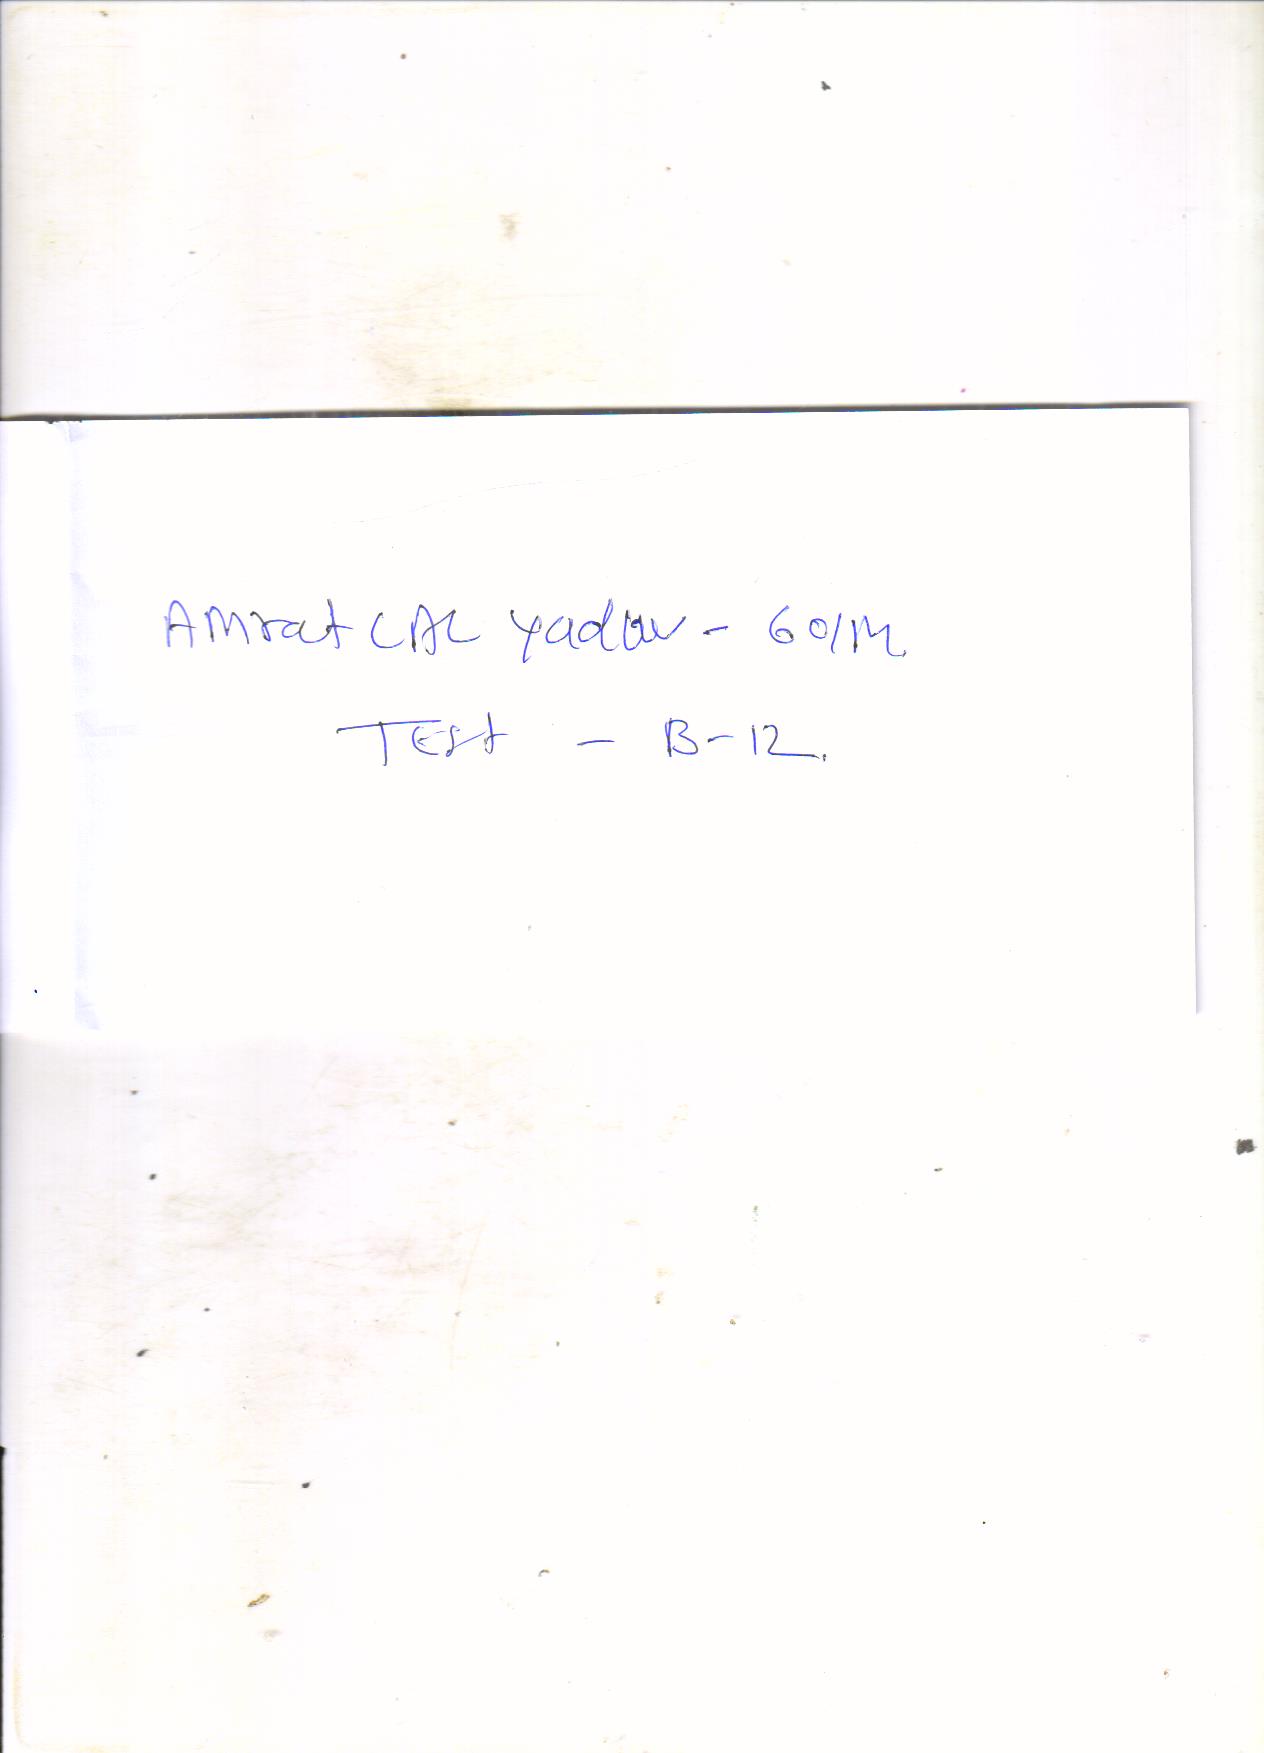 AMrat LAL Yadav - 60/M
TEst - B-12.